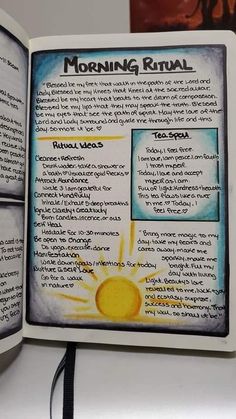 MORNING RITUAL
"Blessed be my feet that walk in the path of the Lord and
Lady. Blessed be my knees that kneel at the sacred altar.
Blessed be my heart that beats to the drum of compassion.
Blessed be my lips that they may speak the truth. Blessed
be my eyes that see the path of spirit. May the love of the
Lord and Lady surround and guide me through life and this
day. So mote it be.
Ritual Ideas
Cleanse + Refresh
Drink water, take a shower or
a bath
Attract Abundance
State 3 I am grateful for
Connect Mindfully
Inhale / Exhale 3 deep breaths
Ignite Clarity + Creativity
Burn candles, incense, or
Self Heal
Meditate for 10-30 minutes
Be open to change
Do yoga, exercise, dance
Manifestation
Write down goals / intentions for today
Nurture a Self Love
Go for a walk
in nature
Tea Spell
Today, I feel free.
I am love, I am peace, I am faith
I trust myself
Today, I love and accept
myself as I am.
Full of light, kindness + health.
This tea flows like a river
in me. Today, I
feel free.
"Bring more magic to my
day, take my fears and
cares away, make me
sparkly, make me
bright. Fill my
day with living
Light. Beauty + love
revealed to me, luck + joy
and ecstasy, surprise,
success and harmony. This is
my will, so should it be."